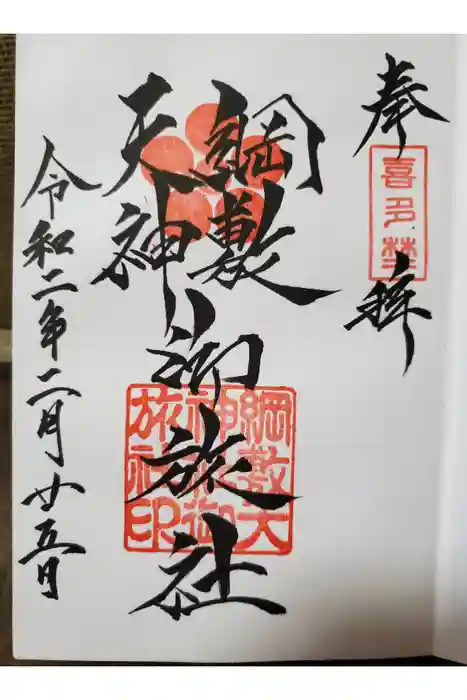 奉拝
喜多埜
綱敷
天神
御旅社
綱敷天
神社御
旅社印
令和二年二月廿五日